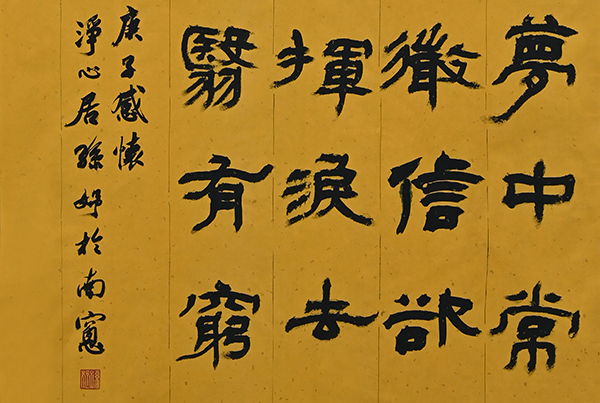 夢中常
信欲
揮淚去
翳有窮
庚子感懷
淨心居孫妤於南窻